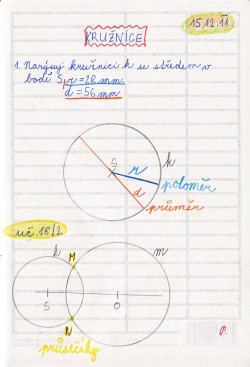 15.12.11
KRUŽNICE
1. Narýsuj kružnici k se středem v
bodě S, r = 28 mm.
d = 56 mm
S
r
k
poloměr
d
průměr
uč. 18/2
k
M
m
S
O
N
průsečíky